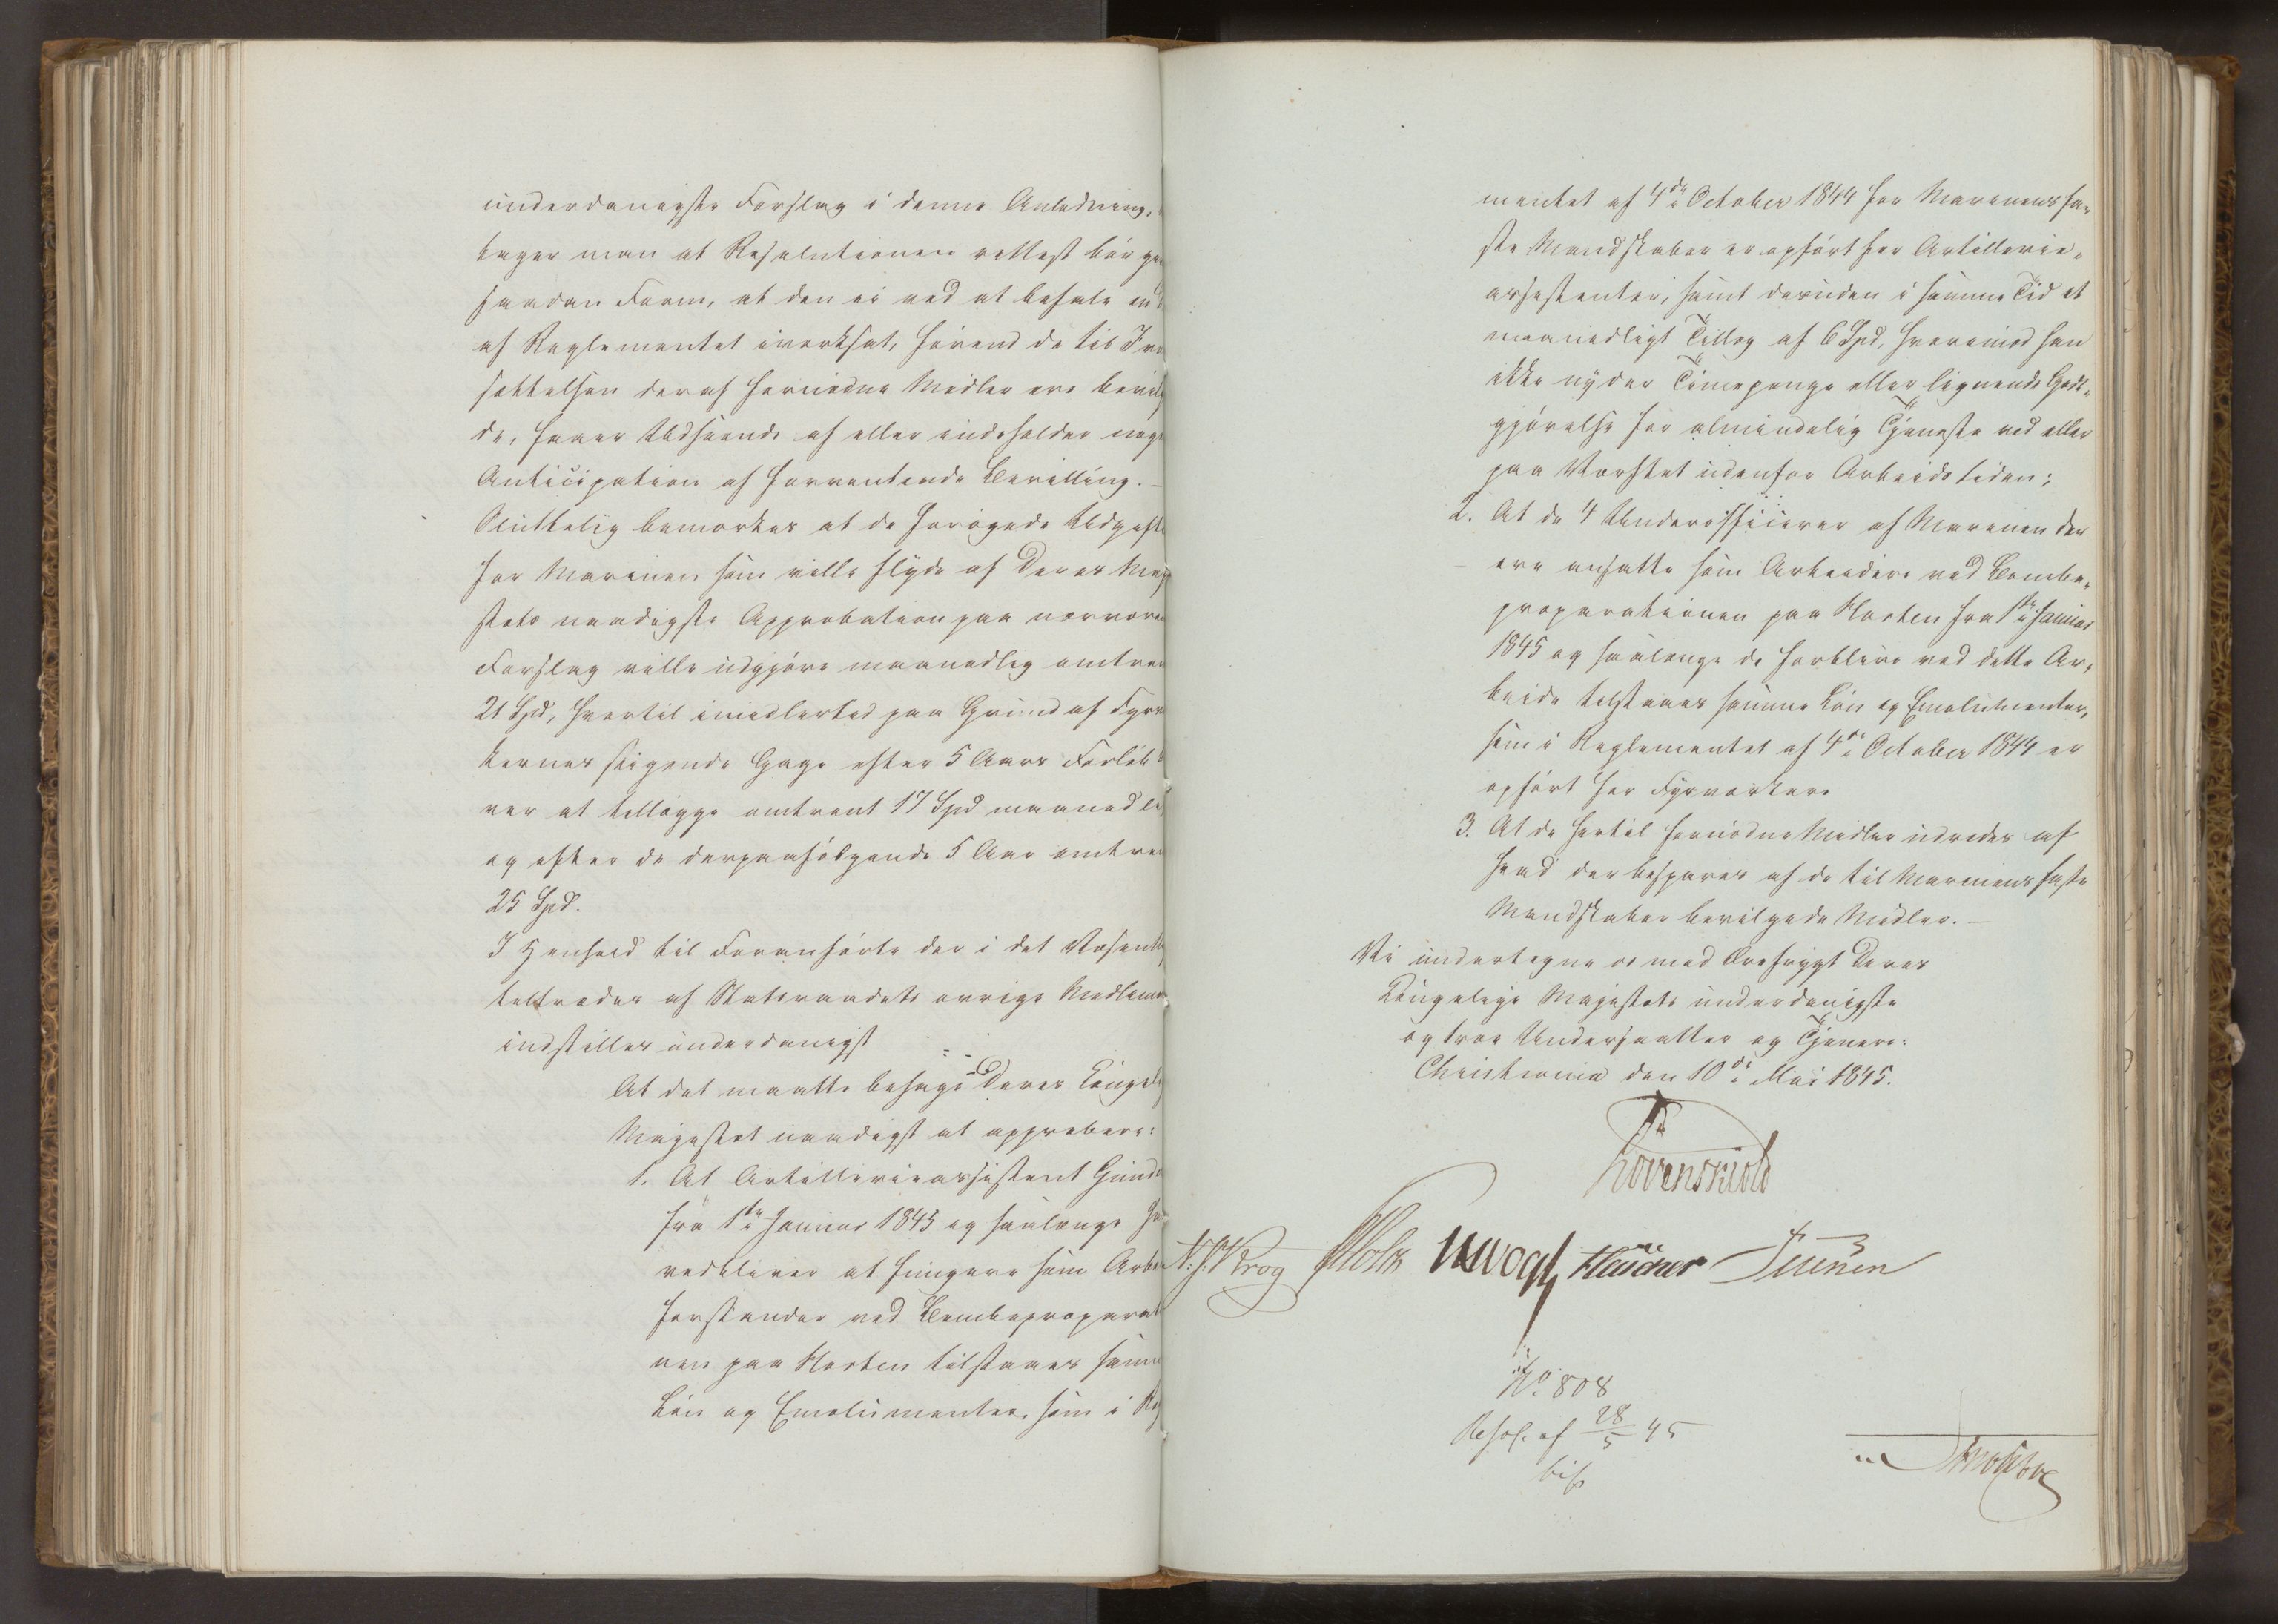 underdanigste Forslag i denne Anledning,
tager man at Resolutionen rettest bør
saadan Form, at den ei ved at befale en
af Reglementet iværksat, førend de til
sættelsen deraf fornødne Midler ere
de, faaer Udseende af eller indeholder
Anticipation af forventende Bevilling.-
Sluttelig bemærkes at de forøgede
for Marinen som ville flyde af Deres
stæts naadigste Approbation paa
Forslag ville udgjøre maanedlig
21 Spd, hvortil imidlertid paa Grund af
kernes stigende Gage efter 5 Aars Forløb
ver at tillægge omtrent 17 Spd
og efter de derpaafølgende 5 Aar
25 Spd.
I Henhold til Foranførte der i det
tiltrædes af Statsraadets øvrige
indstilles underdanigst
At det maatte behage Deres
Majestæt naadigst at approbere:
1. At Artillerieassistent
fra 1ste Januar 1845 og saalænge
vedbliver at fungere som
forstander ved
nen paa Horten tilstaaes
Løn og Emolumenter, som i
mentet af 4de October 1844 for Marinens fa-
ste Mandskaber er opført for Artillerie-
assistenter, samt desuden i samme Tid et
maanedligt Tillæg af 6 Spd, hvorimod han
ikke nyder Timepenge eller lignende Godt-
gjørelse for almindelig Tjeneste ved eller
paa Værftet udenfor Arbeidstiden;
2. At de 4 Underofficierer af Marinen der
ere ansatte som Arbeidere ved Bombe-
præparationen paa Horten fra 1ste Januar
1845 og saalænge de forblive ved dette Ar-
beide tilstaaes samme Løn og Emolumenter,
som i Reglementet af 4de October 1844 er
opført for Fyrværkere
3. At de hertil fornødne Midler udredes af
hvad der besparer af de til Marinens faste
Mandskaber bevilgede Midler.-
Vi undertegne os med Ærefrygt Deres
Kongelige Majestæts underdanigste
og troe Undersaatter og Tjenere.
Christiania den 10de Mai 1845.
Løvenskiold
Krog Holst Vogt
No 808
Resol. af 28/5 45